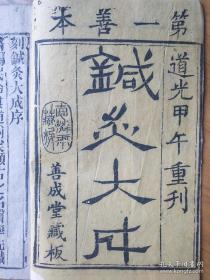 第一善本
道光甲午重刊
鍼灸大成
善成堂藏板
刻鍼灸大成序